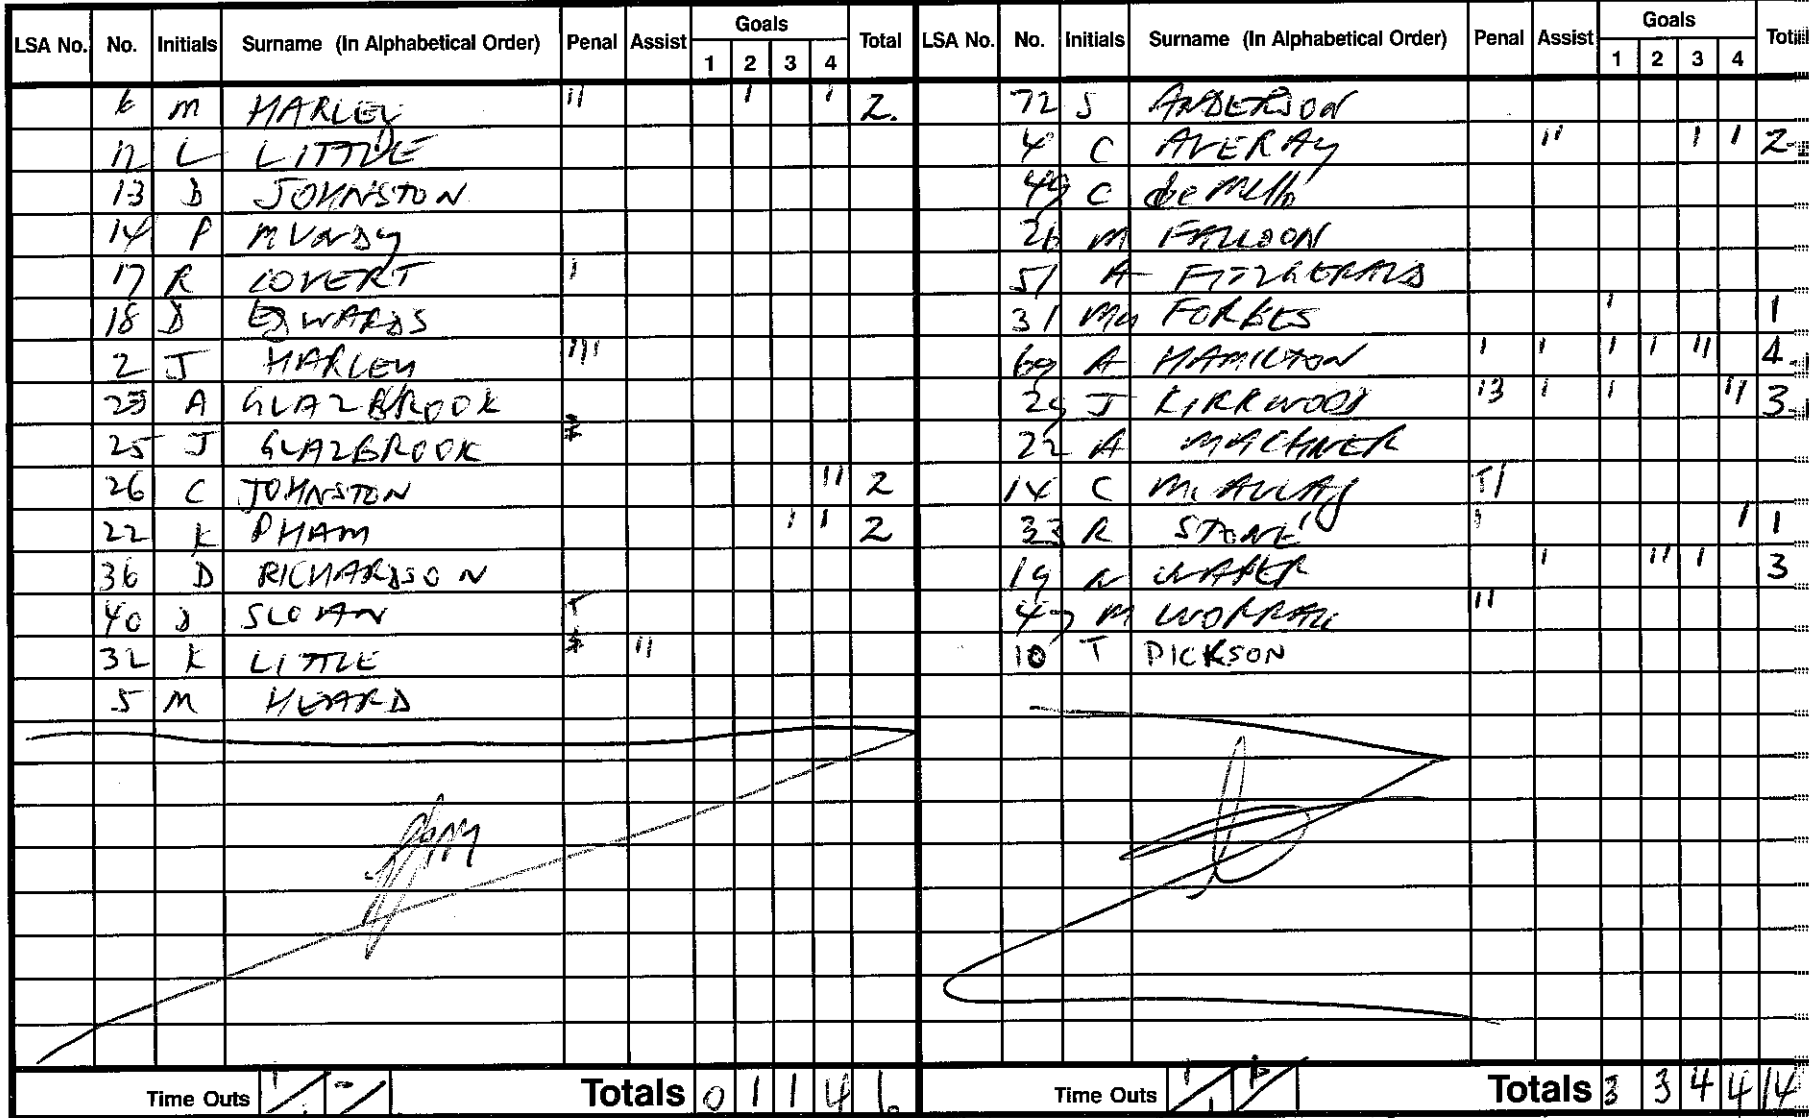 LSA No. No. Initials Surname (In Alphabetical Order) Penal Assist Goals 1 2 3 4 Total
6 M HARLEY II I I 2.
12 L LITTLE
13 D JOHNSTON
14 P
17 R COVERT I
18 D EDWARDS
2 J HARLEY III
23 A GLAZBROOK
25 J GLAZBROOK
26 C JOHNSTON II 2
22 K PHAM I I 2
36 D RICHARDSON
40 D SLOMAN T
32 K LITTLE II
5 M HEARD
Time Outs Totals 0 1 1 4 6
LSA No. No. Initials Surname (In Alphabetical Order) Penal Assist Goals 1 2 3 4 Total
72 S ANDERSON
4 C AVERAY II I I 2
49 C de Mello
26 M FALLOON
51 A FITZGERALD
31 FORBES I 1
69 A HAMILTON I I I I II 4
J KIRKWOOD 13 I I II 3
22 A
14 C McAULAY TI
33 R STONE I I 1
19 N I II I 3
47 M WORRALL II
10 T DICKSON
Time Outs Totals 3 3 4 4 14